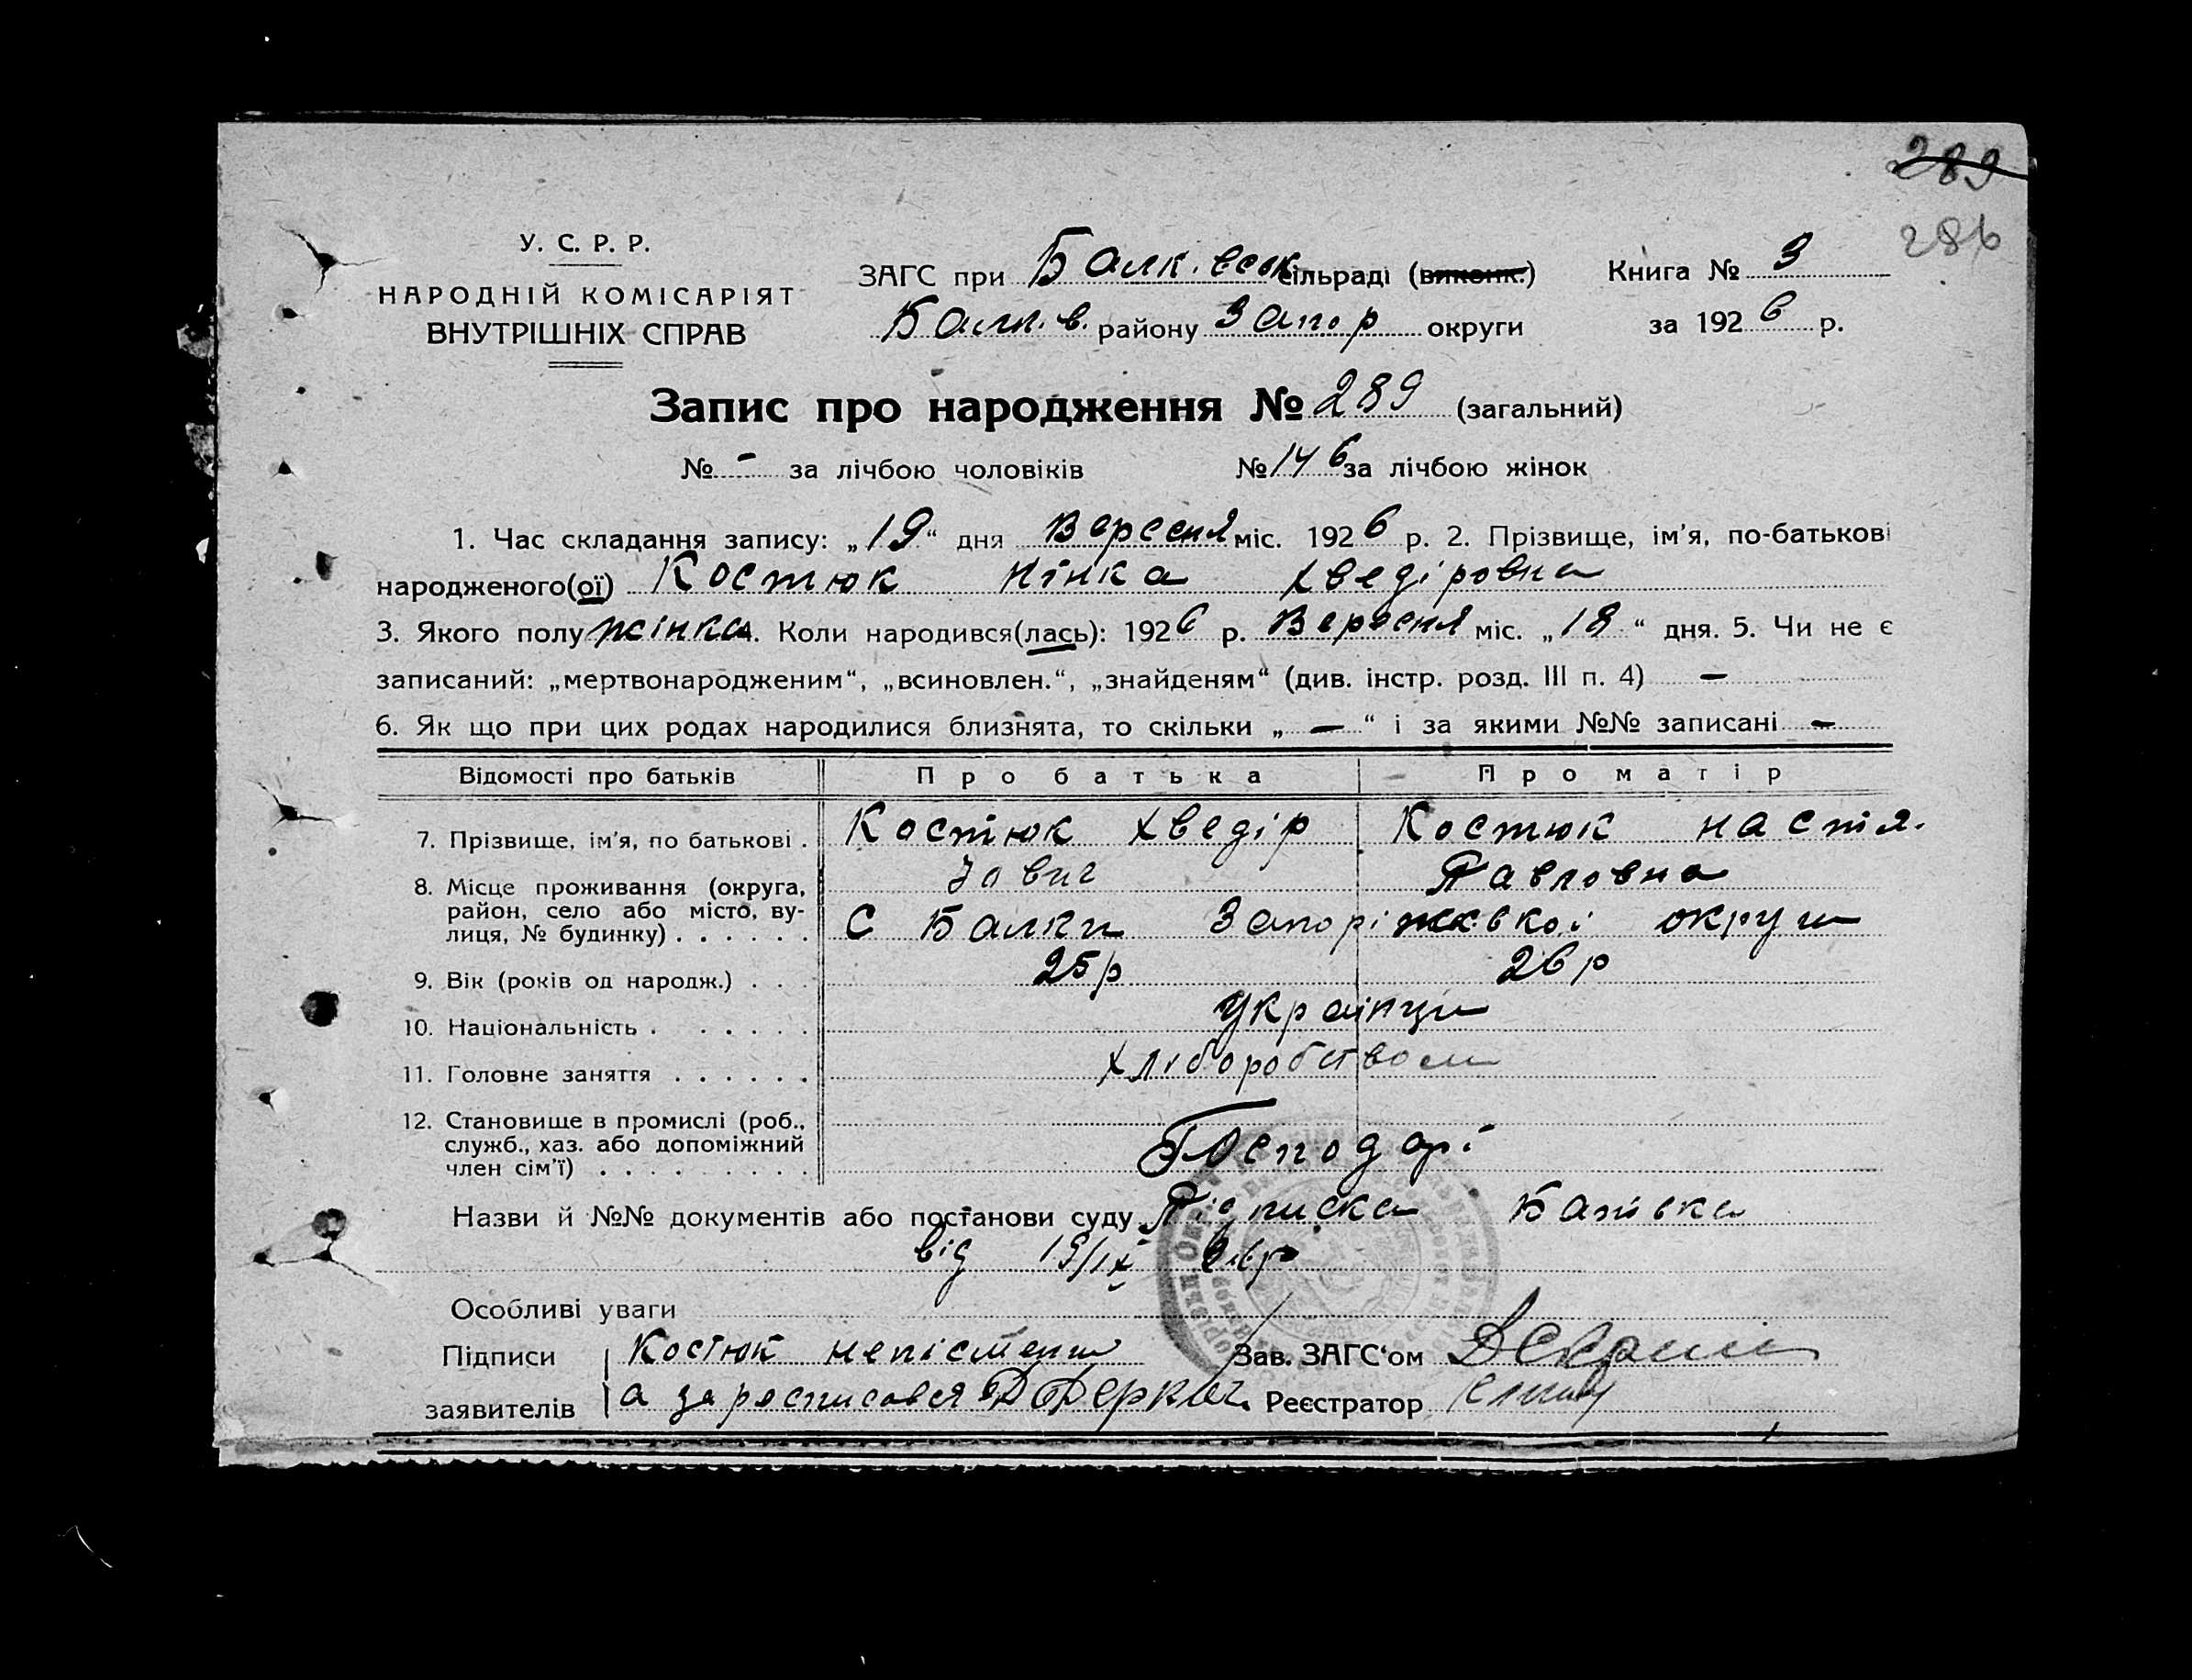 289
286
У. С. Р. Р.
НАРОДНІЙ КОМІСАРІЯТ
ВНУТРІШНІХ СПРАВ
ЗАГС при Балк. сільраді (виконк.) Книга № 3
Балк. в. району Запор округи за 1926 р.
Запис про народження № 289 (загальний)
№ - за лічбою чоловіків № 146 за лічбою жінок
1. Час складання запису: „19“ дня Вересня міс. 1926 р. 2. Прізвище, ім'я, по-батькові
народженого(ої) Костюк Нінка Хведіровна
3. Якого полу жінка. Коли народився(лась): 1926 р. Вересня міс. „18“ дня. 5. Чи не є
записаний: „мертвонародженим“, „всиновлен.“, „знайденям“ (див. інстр. розд. III п. 4) —
6. Як що при цих родах народилися близнята, то скільки „ — “ і за якими №№ записані —
Відомості про батьків Про батька Про матір
7. Прізвище, ім'я, по батькові . Костюк Хведір Костюк Настя.
Павловна
8. Місце проживання (округа,
район, село або місто, ву-
лиця, № будинку) . . . . . . С Балки Запоріжськой округи
9. Вік (років од народж.) . . . 25р 26р
10. Національність . . . . . . Українци
11. Головне заняття . . . . . . Хліборобством
12. Становище в промислі (роб.,
служб., хаз. або допоміжний
член сім'ї) . . . . . . . . Господарі
Назви й №№ документів або постанови суду Підписка Батівка
від 19/IX 26р
Особливі уваги
Підписи Костюк непісменн Зав. ЗАГС'ом
заявителів а за росписався Деркач. Реєстратор